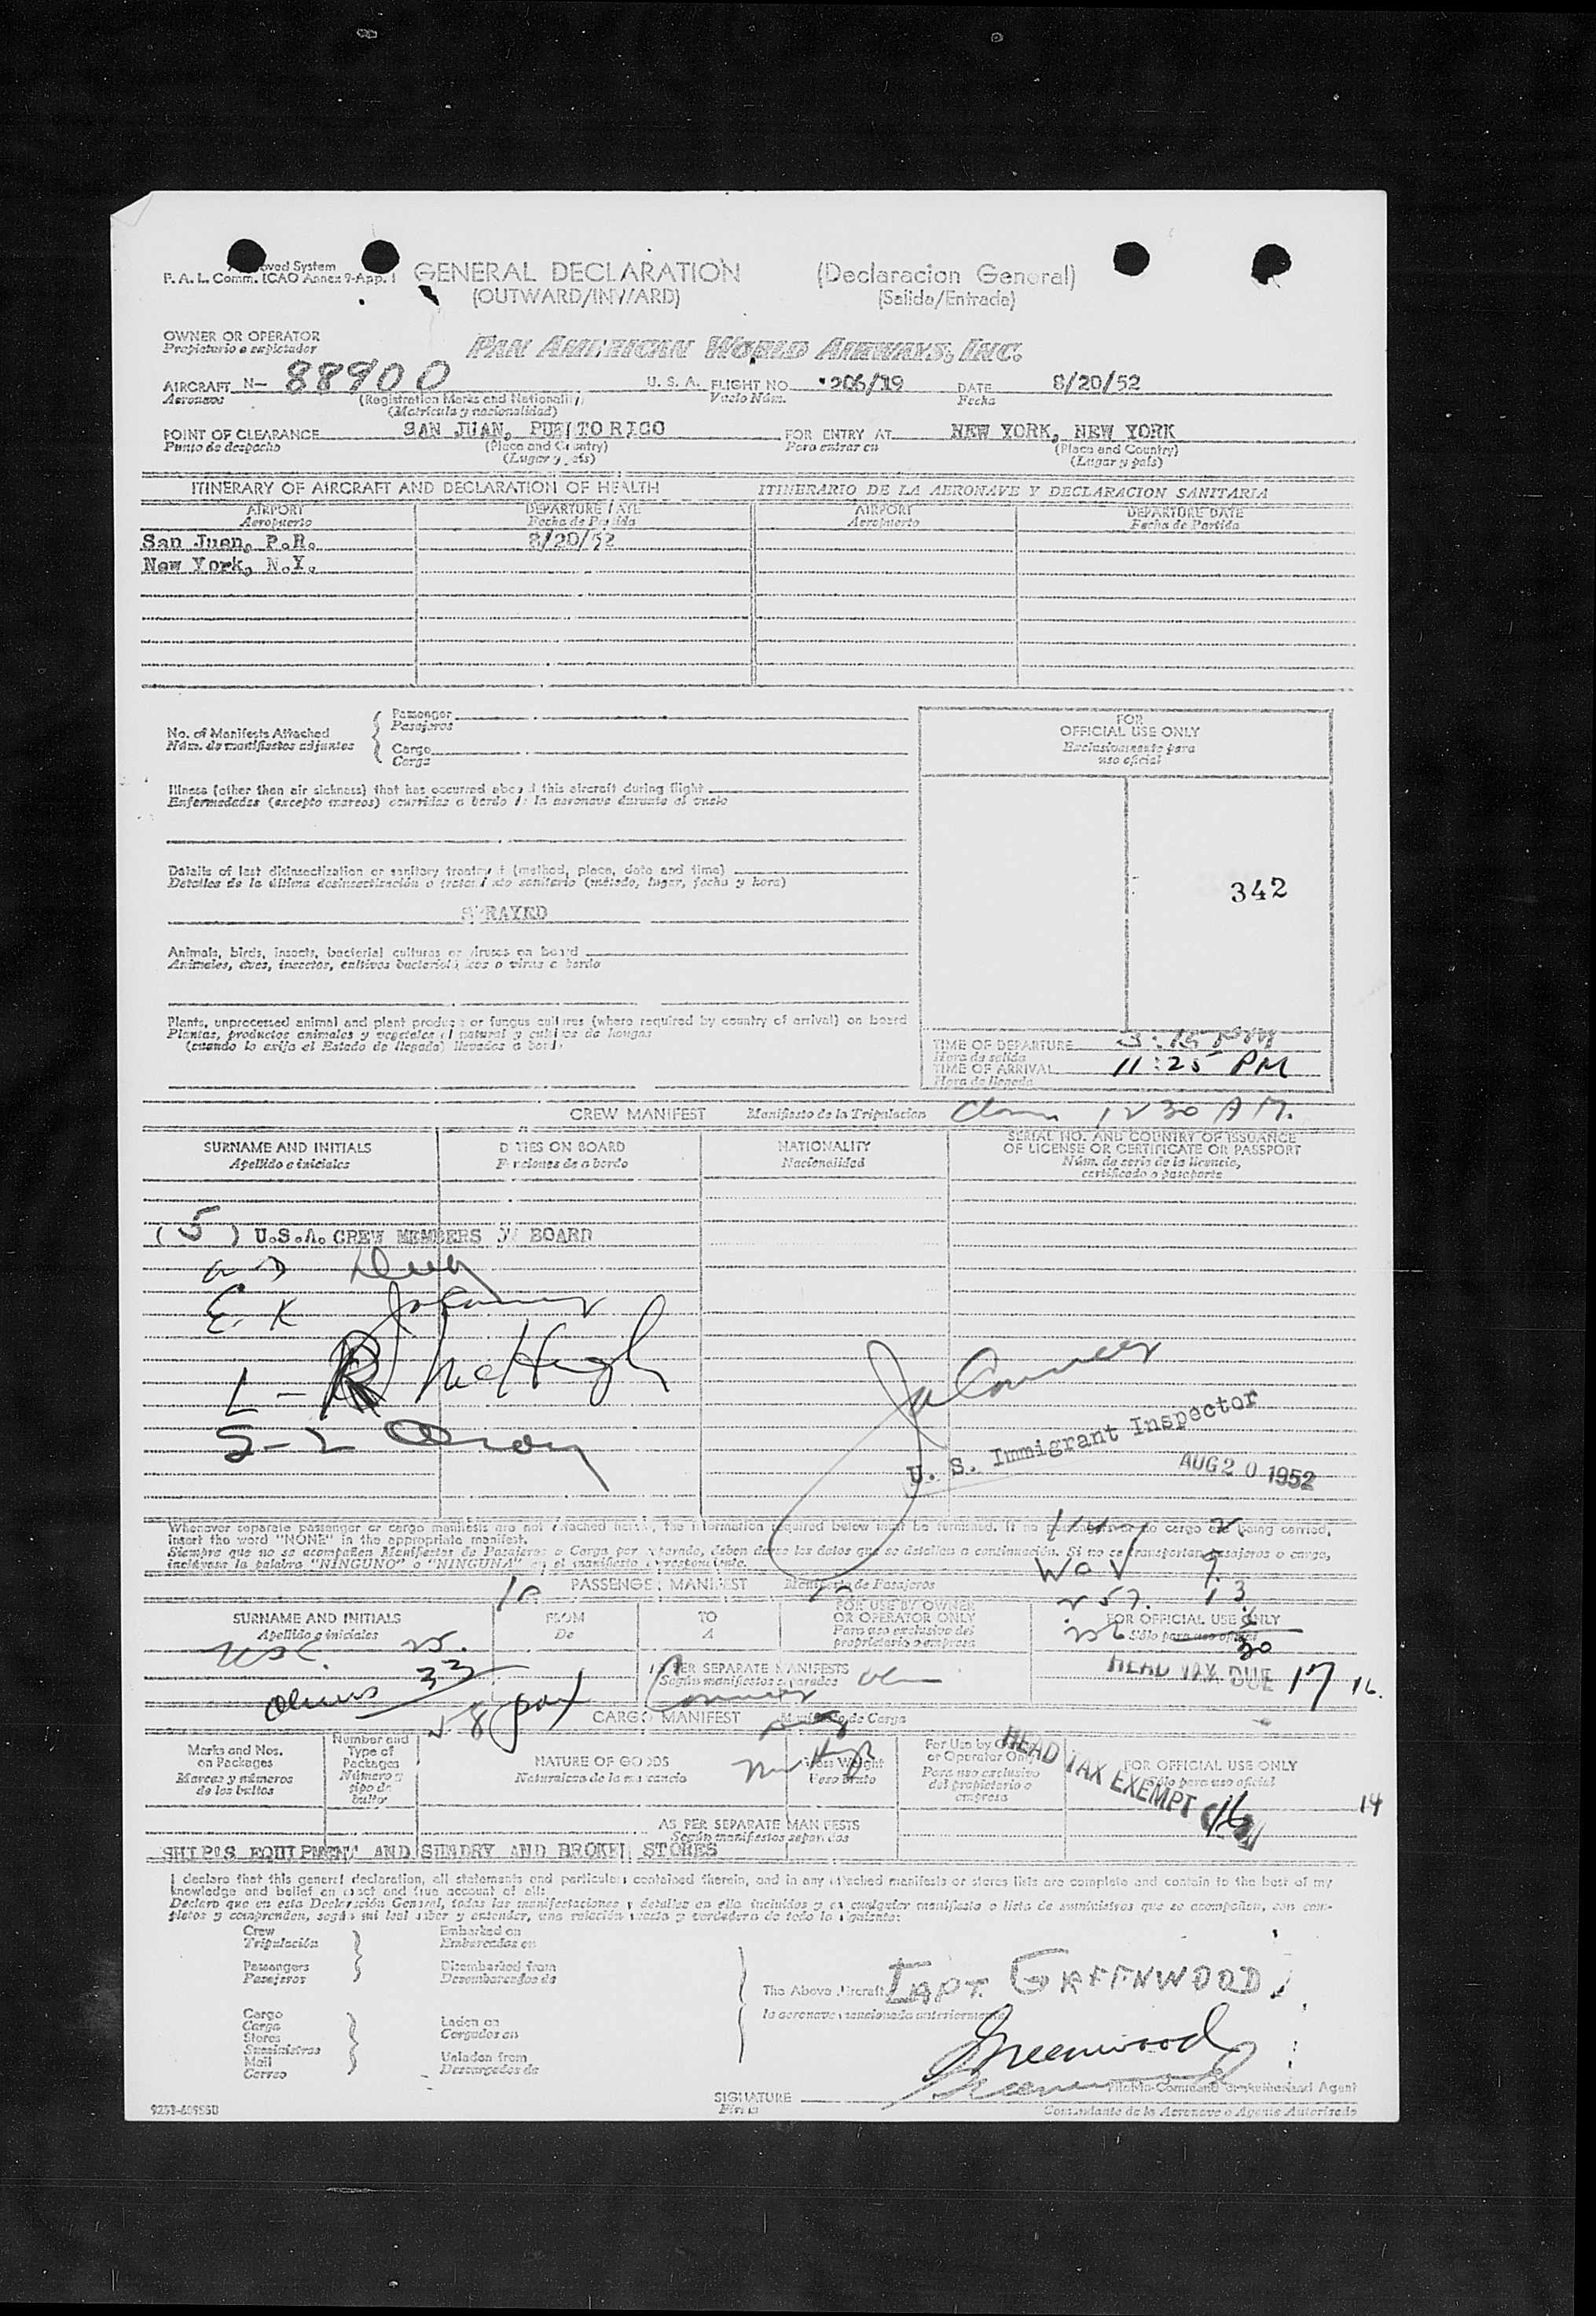 Approved System
F. A. L. Comm. ICAO Annex 9-App. 1
GENERAL DECLARATION (Declaracion General)
(OUTWARD/INWARD) (Salida/Entrada)
OWNER OR OPERATOR
Propietario o explotador
PAN AMERICAN WORLD AIRWAYS, INC.
AIRCRAFT N- 88900 U. S. A. FLIGHT NO. 206/19 DATE 8/20/52
Aeronave (Registration Marks and Nationality) Vuelo Núm. Fecha
(Matricula y nacionalidad)
POINT OF CLEARANCE SAN JUAN, PUERTO RICO FOR ENTRY AT NEW YORK, NEW YORK
Punto de despacho (Place and Country) Para entrar en (Place and Country)
(Lugar y país) (Lugar y país)
ITINERARY OF AIRCRAFT AND DECLARATION OF HEALTH ITINERARIO DE LA AERONAVE Y DECLARACION SANITARIA
AIRPORT DEPARTURE DATE AIRPORT DEPARTURE DATE
Aeropuerto Fecha de Partida Aeropuerto Fecha de Partida
San Juan, P.R. 8/20/52
New York, N.Y.
No. of Manifests Attached
Núm. de manifiestos adjuntos
Passenger
Pasajeros
Cargo
Carga
FOR
OFFICIAL USE ONLY
Exclusivamente para
uso oficial
Illness (other than air sickness) that has occurred aboard this aircraft during flight
Enfermedades (excepto mareos) ocurridas a bordo de la aeronave durante el vuelo
Details of last disinsectization or sanitary treatment (method, place, date and time)
Detalles de la última desinsectización o tratamiento sanitario (método, lugar, fecha y hora)
342
SPRAYED
Animals, birds, insects, bacterial cultures or viruses on board
Animales, aves, insectos, cultivos bacteriológicos o virus a bordo
Plants, unprocessed animal and plant produce or fungus cultures (where required by country of arrival) on board
Plantas, productos animales y vegetales al natural y cultivos de hongos
(cuando lo exija el Estado de llegada) llevados a bordo
TIME OF DEPARTURE 3:15 PM
Hora de salida
TIME OF ARRIVAL 11:25 PM
Hora de llegada
CREW MANIFEST Manifiesto de la Tripulacion 12 30 AM.
SURNAME AND INITIALS DUTIES ON BOARD NATIONALITY SERIAL NO. AND COUNTRY OF ISSUANCE
OF LICENSE OR CERTIFICATE OR PASSPORT
Apellido e iniciales Funciones de a bordo Nacionalidad Núm. de serie de la licencia,
certificado o pasaporte
(5) U.S.A. CREW MEMBERS ON BOARD
E. K
L - R McHugh
U. S. Immigrant Inspector
AUG 20 1952
Whenever separate passenger or cargo manifests are not attached hereto, the information required below must be furnished. If no passengers or no cargo are being carried,
insert the word "NONE" in the appropriate manifest.
Siempre que no se acompañen Manifiestos de Pasajeros o Carga por separado, deben darse los datos que se detallan a continuación. Si no se transportan pasajeros o carga,
inclúyase la palabra "NINGUNO" o "NINGUNA" en el manifiesto correspondiente.
WOV 9
PASSENGER MANIFEST Manifiesto de Pasajeros
257. 13
SURNAME AND INITIALS FROM TO FOR USE BY OWNER
OR OPERATOR ONLY
FOR OFFICIAL USE ONLY
Apellido e iniciales De A Para uso exclusivo del
propietario o empresa
Sólo para uso oficial
30
USC. 25.
AS PER SEPARATE MANIFESTS
Según manifiestos separados
HEAD TAX DUE 17 16.
Aliens 33
58 pax
CARGO MANIFEST Manifiesto de Carga
Marks and Nos.
on Packages
Marcas y números
de los bultos
Number and
Type of
Packages
Número y
tipo de
bulto
NATURE OF GOODS
Naturaleza de la mercancia
Gross Weight
Peso Bruto
For Use by Owner
or Operator Only
Para uso exclusivo
del propietario o
empresa
FOR OFFICIAL USE ONLY
Sólo para uso oficial
HEAD TAX EXEMPT 16
14
AS PER SEPARATE MANIFESTS
Según manifiestos separados
SHIP'S EQUIPMENT AND SUNDRY AND BROKEN STORES
I declare that this general declaration, all statements and particulars contained therein, and in any attached manifests or stores lists are complete and contain to the best of my
knowledge and belief an exact and true account of all:
Declaro que en esta Declaración General, todas las manifestaciones y detalles en ella incluídos y en cualquier manifiesto o lista de suministros que se acompañen, son com-
pletos y comprenden, según mi leal saber y entender, una relación exacta y verdadera de todo lo siguiente:
Crew
Tripulación
Passengers
Pasajeros
Embarked on
Embarcados en
Disembarked from
Desembarcados de
Cargo
Carga
Stores
Suministros
Mail
Correo
Laden on
Cargados en
Unladen from
Descargados de
The Above Aircraft CAPT. GREENWOOD
la aeronave mencionada anteriormente
Greenwood
Greenwood
SIGNATURE
Firma
Pilot-in-Command or Authorized Agent
Comandante de la Aeronave o Agente Autorizado